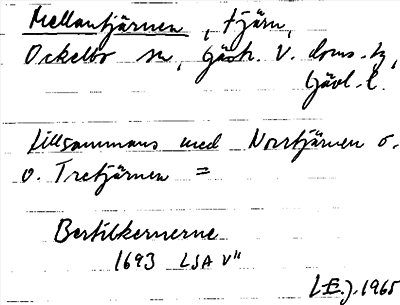 Mellantjärnen, tjärn,
Ockelbo sn, Gästr. V. doms. tg,
Gävl. l.
tillsammans med Norrtjärnen o.
o. Tretjärnen =
Bertilkernerne
1693 LSA V"
LE.j. 1965